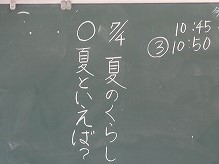 10:45
③10:50
7/4 夏のくらし
○夏といえば？